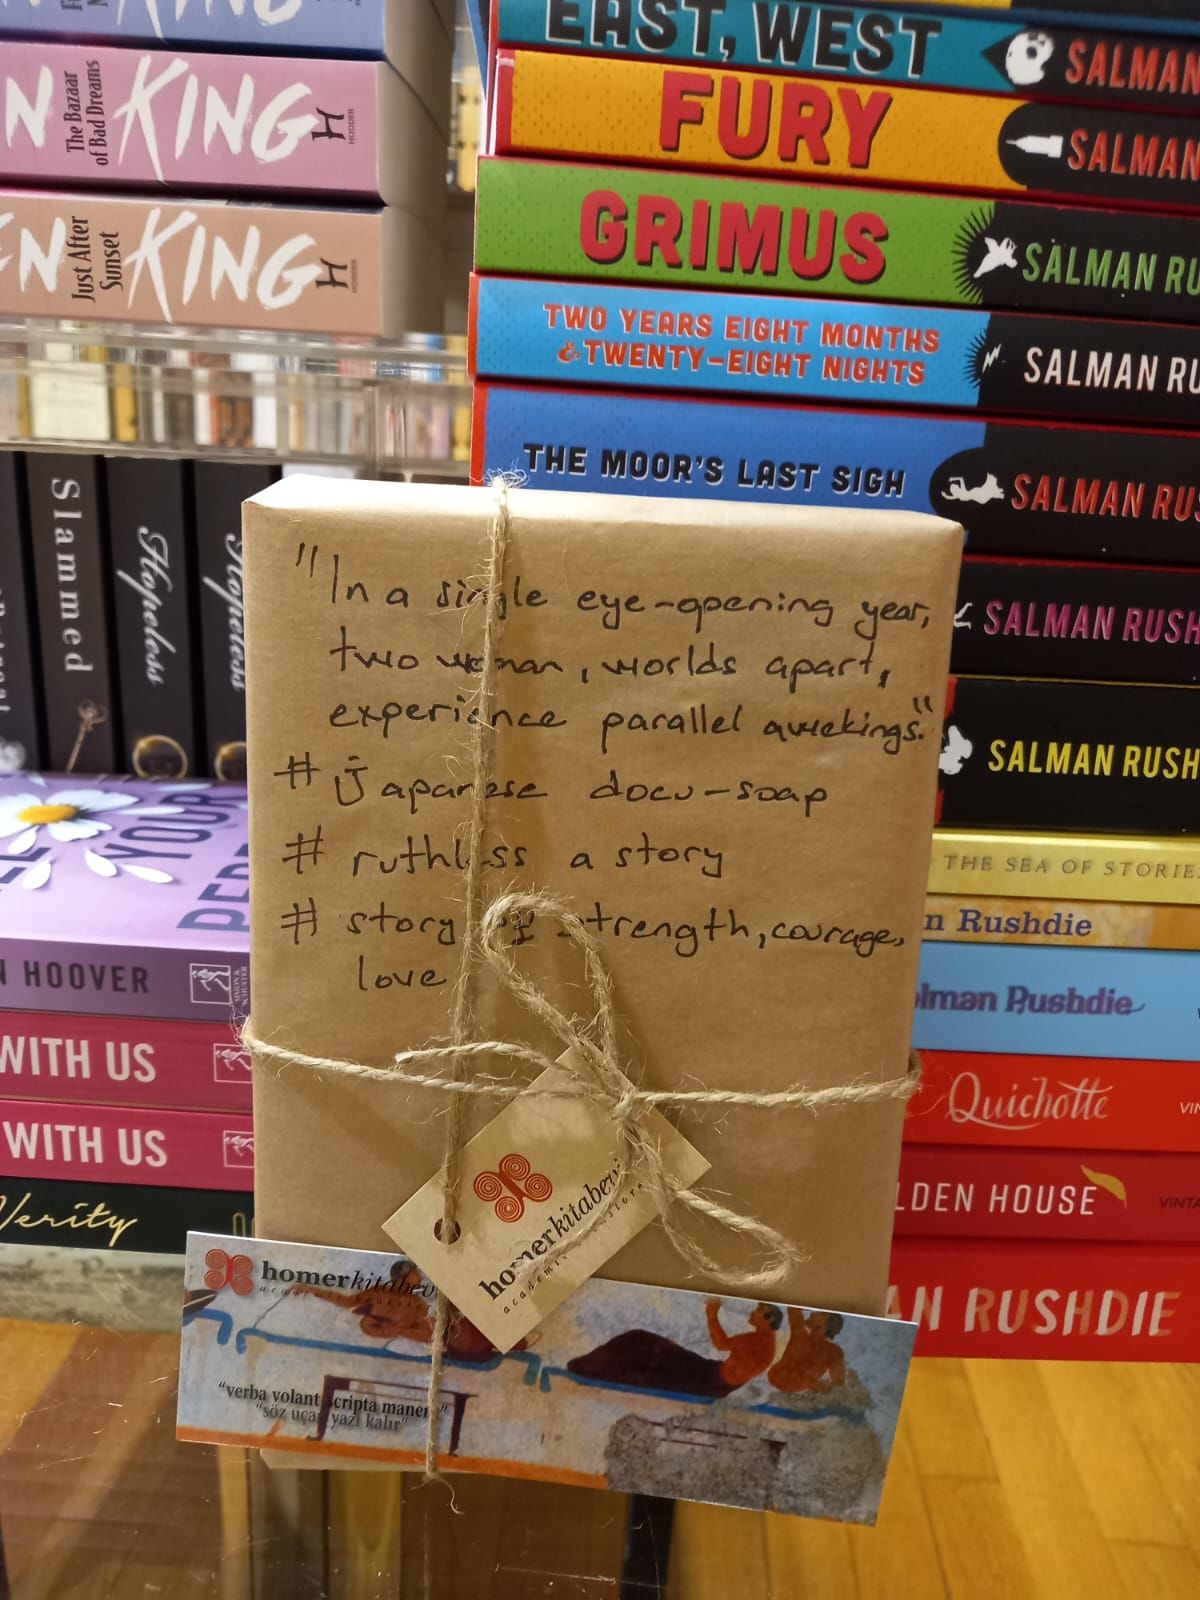 The Bazaar
of Bad Dreams
KING
HODDER
Just After
Sunset
KING
HODDER
EAST, WEST
SALMAN
FURY
SALMAN
GRIMUS
SALMAN RU
TWO YEARS EIGHT MONTHS
& TWENTY-EIGHT NIGHTS
SALMAN RU
THE MOOR'S LAST SIGH
SALMAN RUS
SALMAN RUSH
SALMAN RUSH
THE SEA OF STORIES
n Rushdie
lman Rushdie
Quichotte
VIN
LDEN HOUSE
VINTA
AN RUSHDIE
Slammed
Hopeless
Hopeless
YOUR
PER
N HOOVER
WITH US
WITH US
Verity
"In a single eye-opening year,
two woman, worlds apart,
experience parallel awekings."
# Japanese docu-soap
# ruthless a story
# story of strength, courage,
love
homerkitabevi
academic bookstore
homerkitabev
academic bookstor
"verba volant scripta manent"
"söz uçar yazı kalır"